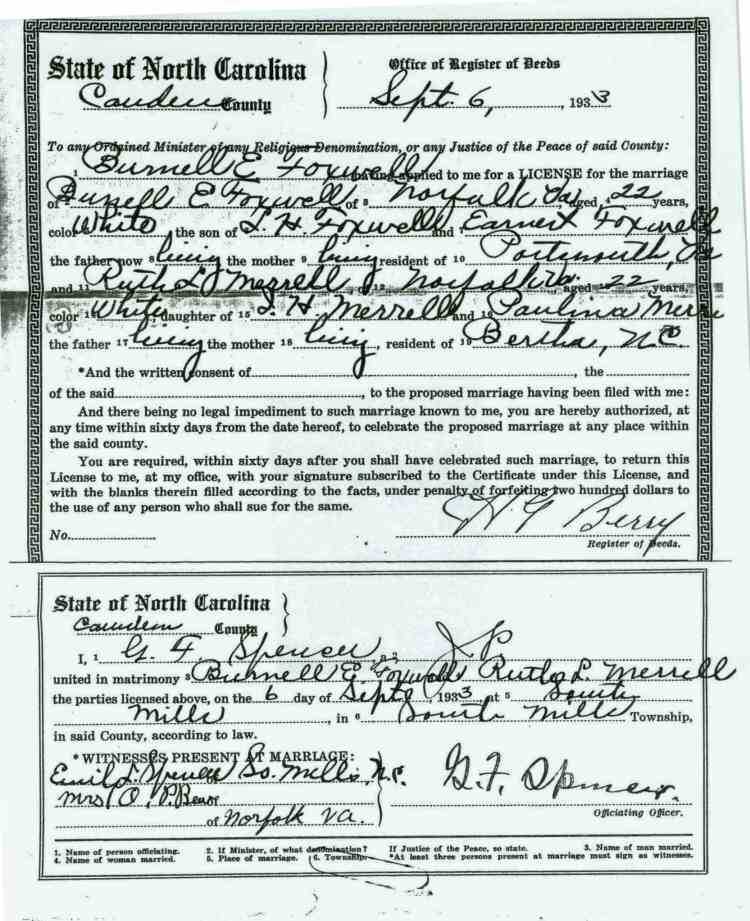 State of North Carolina
Camden County
Office of Register of Deeds
Sept. 6, 1933
To any Ordained Minister of any Religious Denomination, or any Justice of the Peace of said County:
1 Burnell E Foxwell having applied to me for a LICENSE for the marriage
of Burnell E Foxwell of 3 Norfolk Va aged 4 22 years,
color White, the son of L. H. Foxwell and 7 Earnest Foxwell
the father now 8 living the mother 9 living resident of 10 Portsmouth, Va
and 11 Ruth L Merrell of 12 Norfolk Va. aged 22 years,
color 14 White daughter of 15 L. H. Merrell and 16 Paulina Merre
the father 17 living the mother 18 living, resident of 19 Bertha, N.C.
*And the written consent of , the
of the said , to the proposed marriage having been filed with me:
And there being no legal impediment to such marriage known to me, you are hereby authorized, at
any time within sixty days from the date hereof, to celebrate the proposed marriage at any place within
the said county.
You are required, within sixty days after you shall have celebrated such marriage, to return this
License to me, at my office, with your signature subscribed to the Certificate under this License, and
with the blanks therein filled according to the facts, under penalty of forfeiting two hundred dollars to
the use of any person who shall sue for the same.
No.
W G Berry
Register of Deeds.
State of North Carolina
Camden County
I, 1 G. F. Spencer, a 2 J P
united in matrimony 3 Burnell E. Foxwell Ruth L. Merrell
the parties licensed above, on the 6 day of Sept, 1933 at 5 South
Mills, in 6 South Mills Township,
in said County, according to law.
*WITNESSES PRESENT AT MARRIAGE:
L. Spencer So. Mills, N.C.
Mrs O. P.
of Norfolk Va.
G. F. Spencer.
Officiating Officer.
1. Name of person officiating. 2. If Minister, of what denomination? If Justice of the Peace, so state. 3. Name of man married.
4. Name of woman married. 5. Place of marriage. 6. Township. *At least three persons present at marriage must sign as witnesses.